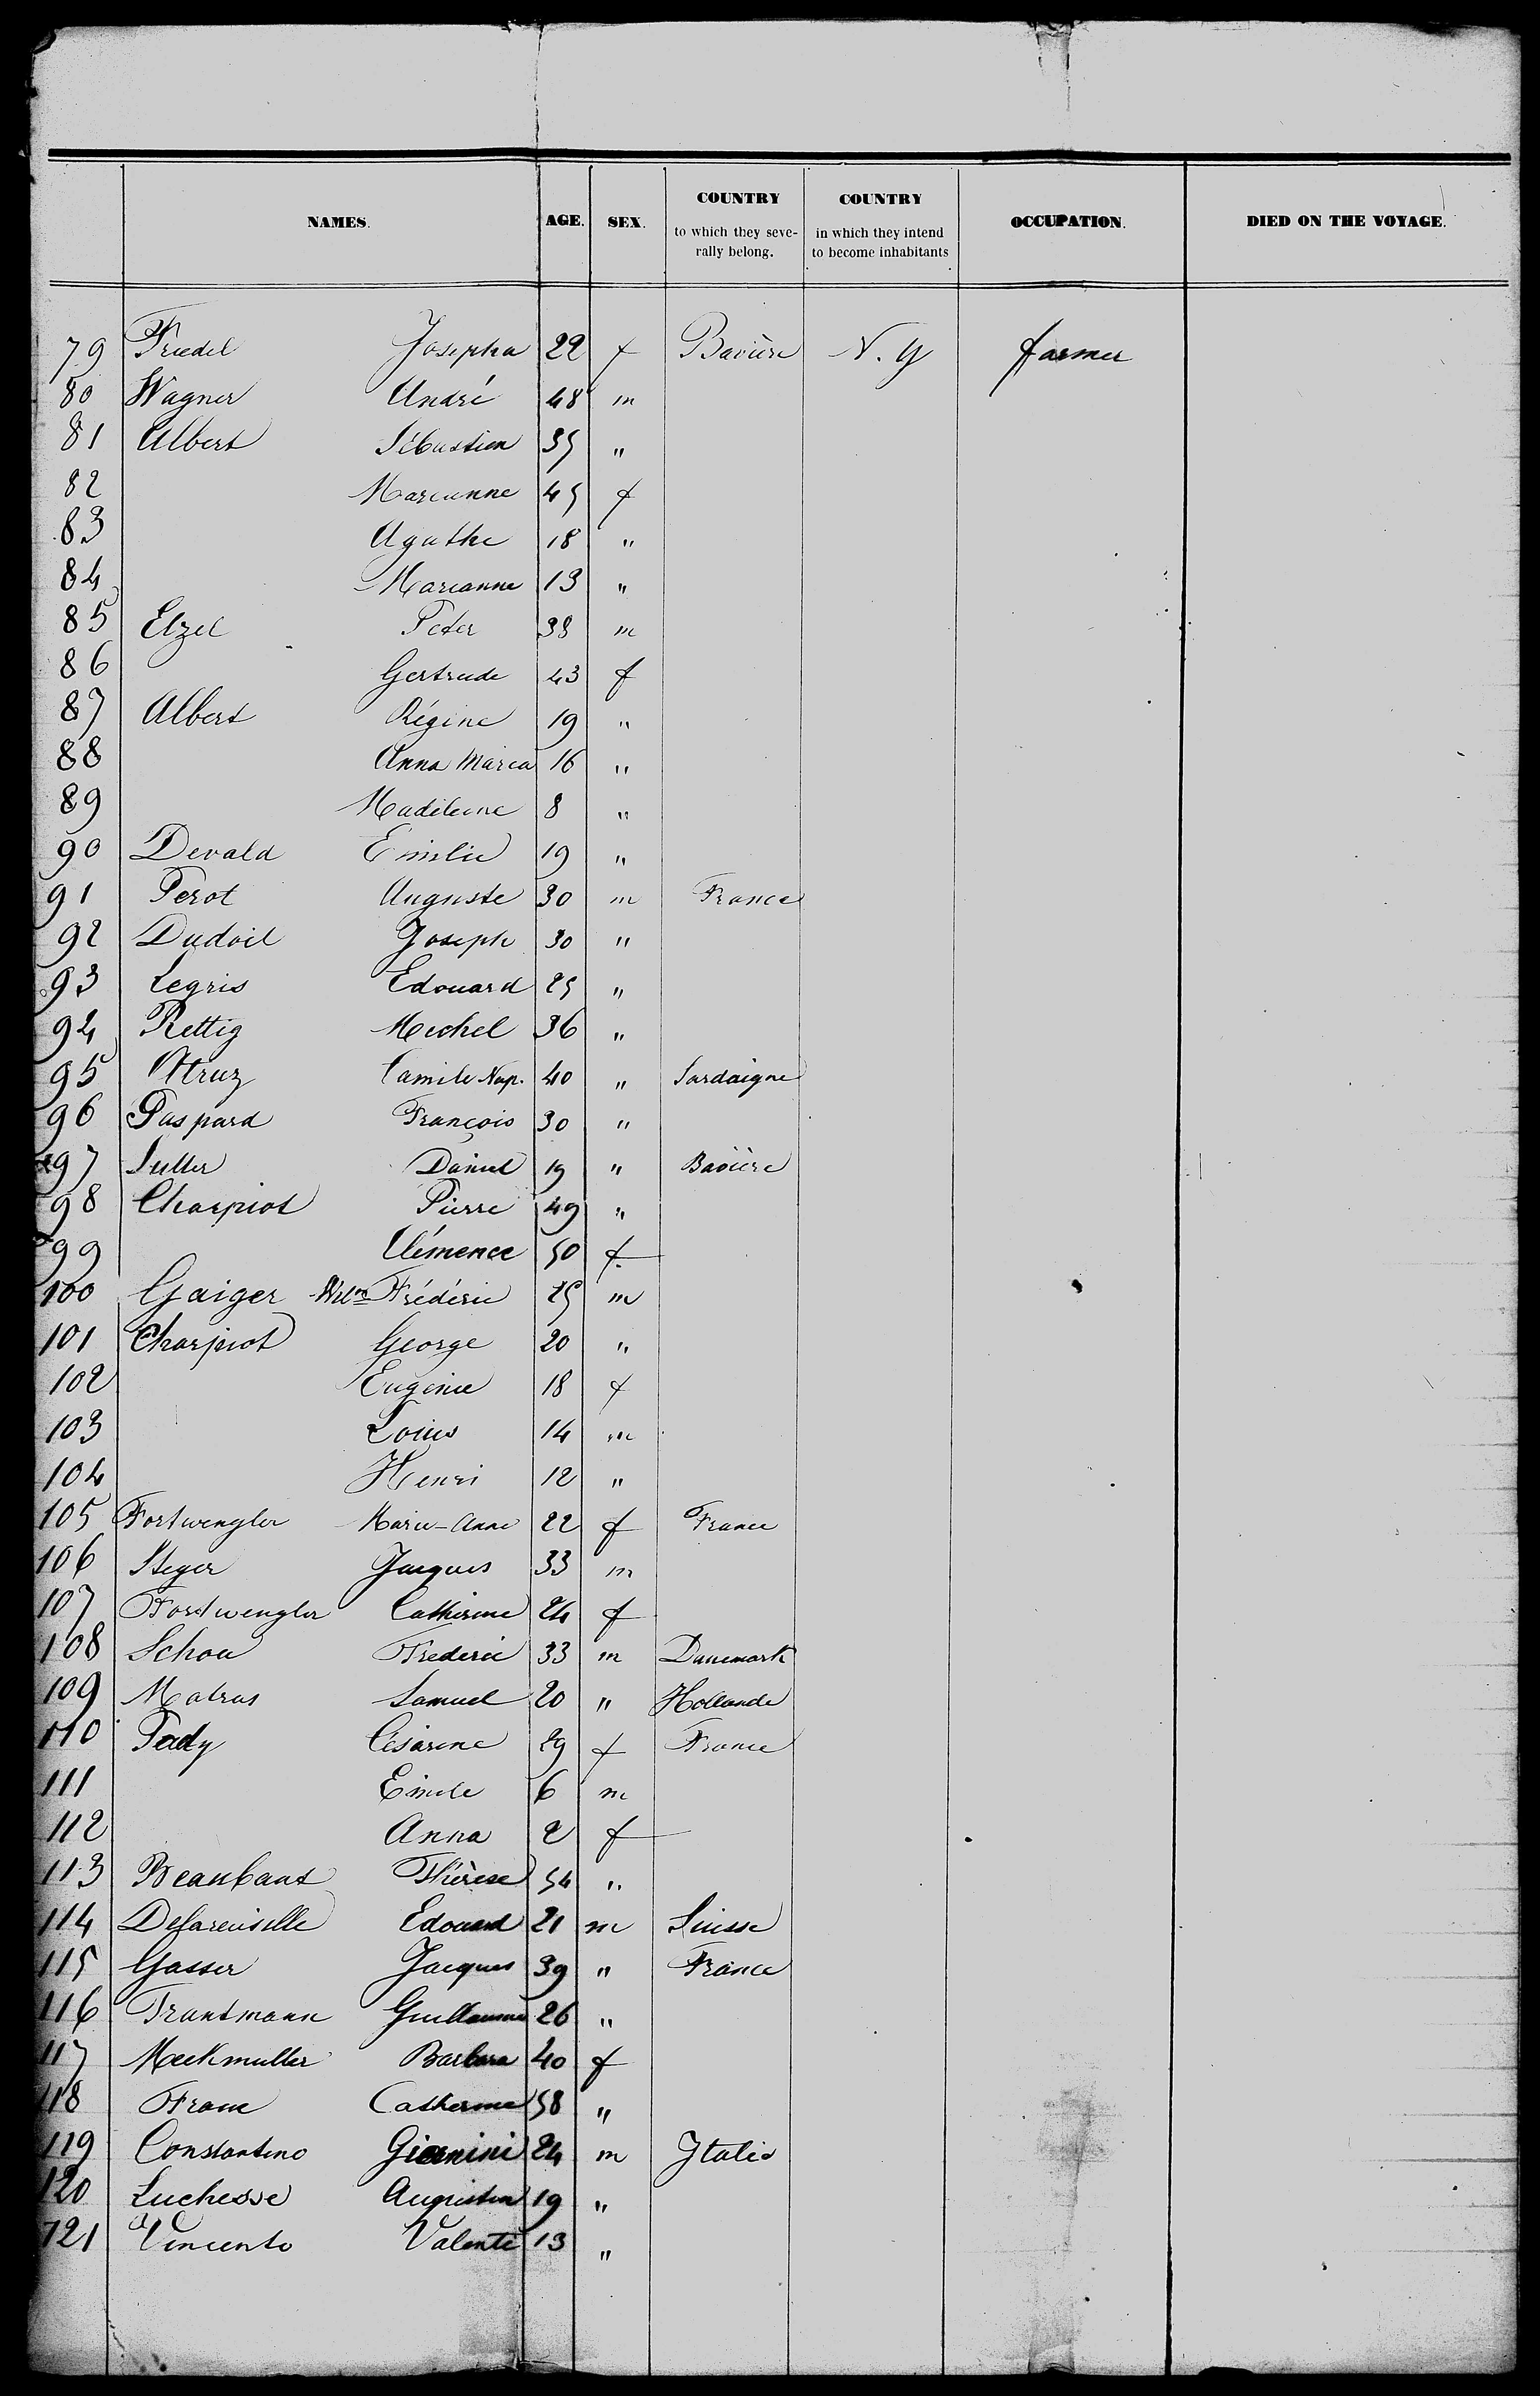 NAMES. AGE. SEX. COUNTRY to which they seve- rally belong. COUNTRY in which they intend to become inhabitants OCCUPATION. DIED ON THE VOYAGE.
79 Friedel Josepha 22 f Bavière N. Y farmer
80 Wagner André 48 m
81 Albert Sébastien 35 "
82 Marianne 45 f
83 Agathe 18 "
84 Marianne 13 "
85 Etzel Peter 38 m
86 Gertrude 43 f
87 Albert Régine 19 "
88 Anna Maria 16 "
89 Madeleine 8 "
90 Devald Emilie 19 "
91 Perot Auguste 30 m France
92 Dudoil Joseph 30 "
93 Legris Edouard 25 "
94 Rettig Michel 36 "
95 Atruz Camile Nap. 40 " Sardaigne
96 Paspard François 30 "
97 Suller Daniel 19 " Bavière
98 Charpiot Pierre 49 "
99 Clémence 50 f
100 Gaiger Wilm Frédéric 25 m
101 Charpiot George 20 "
102 Eugénie 18 f
103 Louis 14 m
104 Henri 12 "
105 Fortwengler Marie-Anne 22 f France
106 Steger Jacques 33 m
107 Fortwengler Catherine 24 f
108 Schou Frederic 33 m Danemark
109 Matras Samuel 20 " Hollande
110 Pady Césarine 29 f France
111 Emile 6 m
112 Anna 2 f
113 Beaubant Thérèse 54 "
114 Edouard 21 m Suisse
115 Gasser Jacques 39 " France
116 Trautmann Guillaume 26 "
117 Meckmuller Barbara 40 f
118 Franc Catherine 58 "
119 Constantino Giannini 24 m Italie
120 Luchesse Augustin 19 "
121 Vincento Valente 13 "